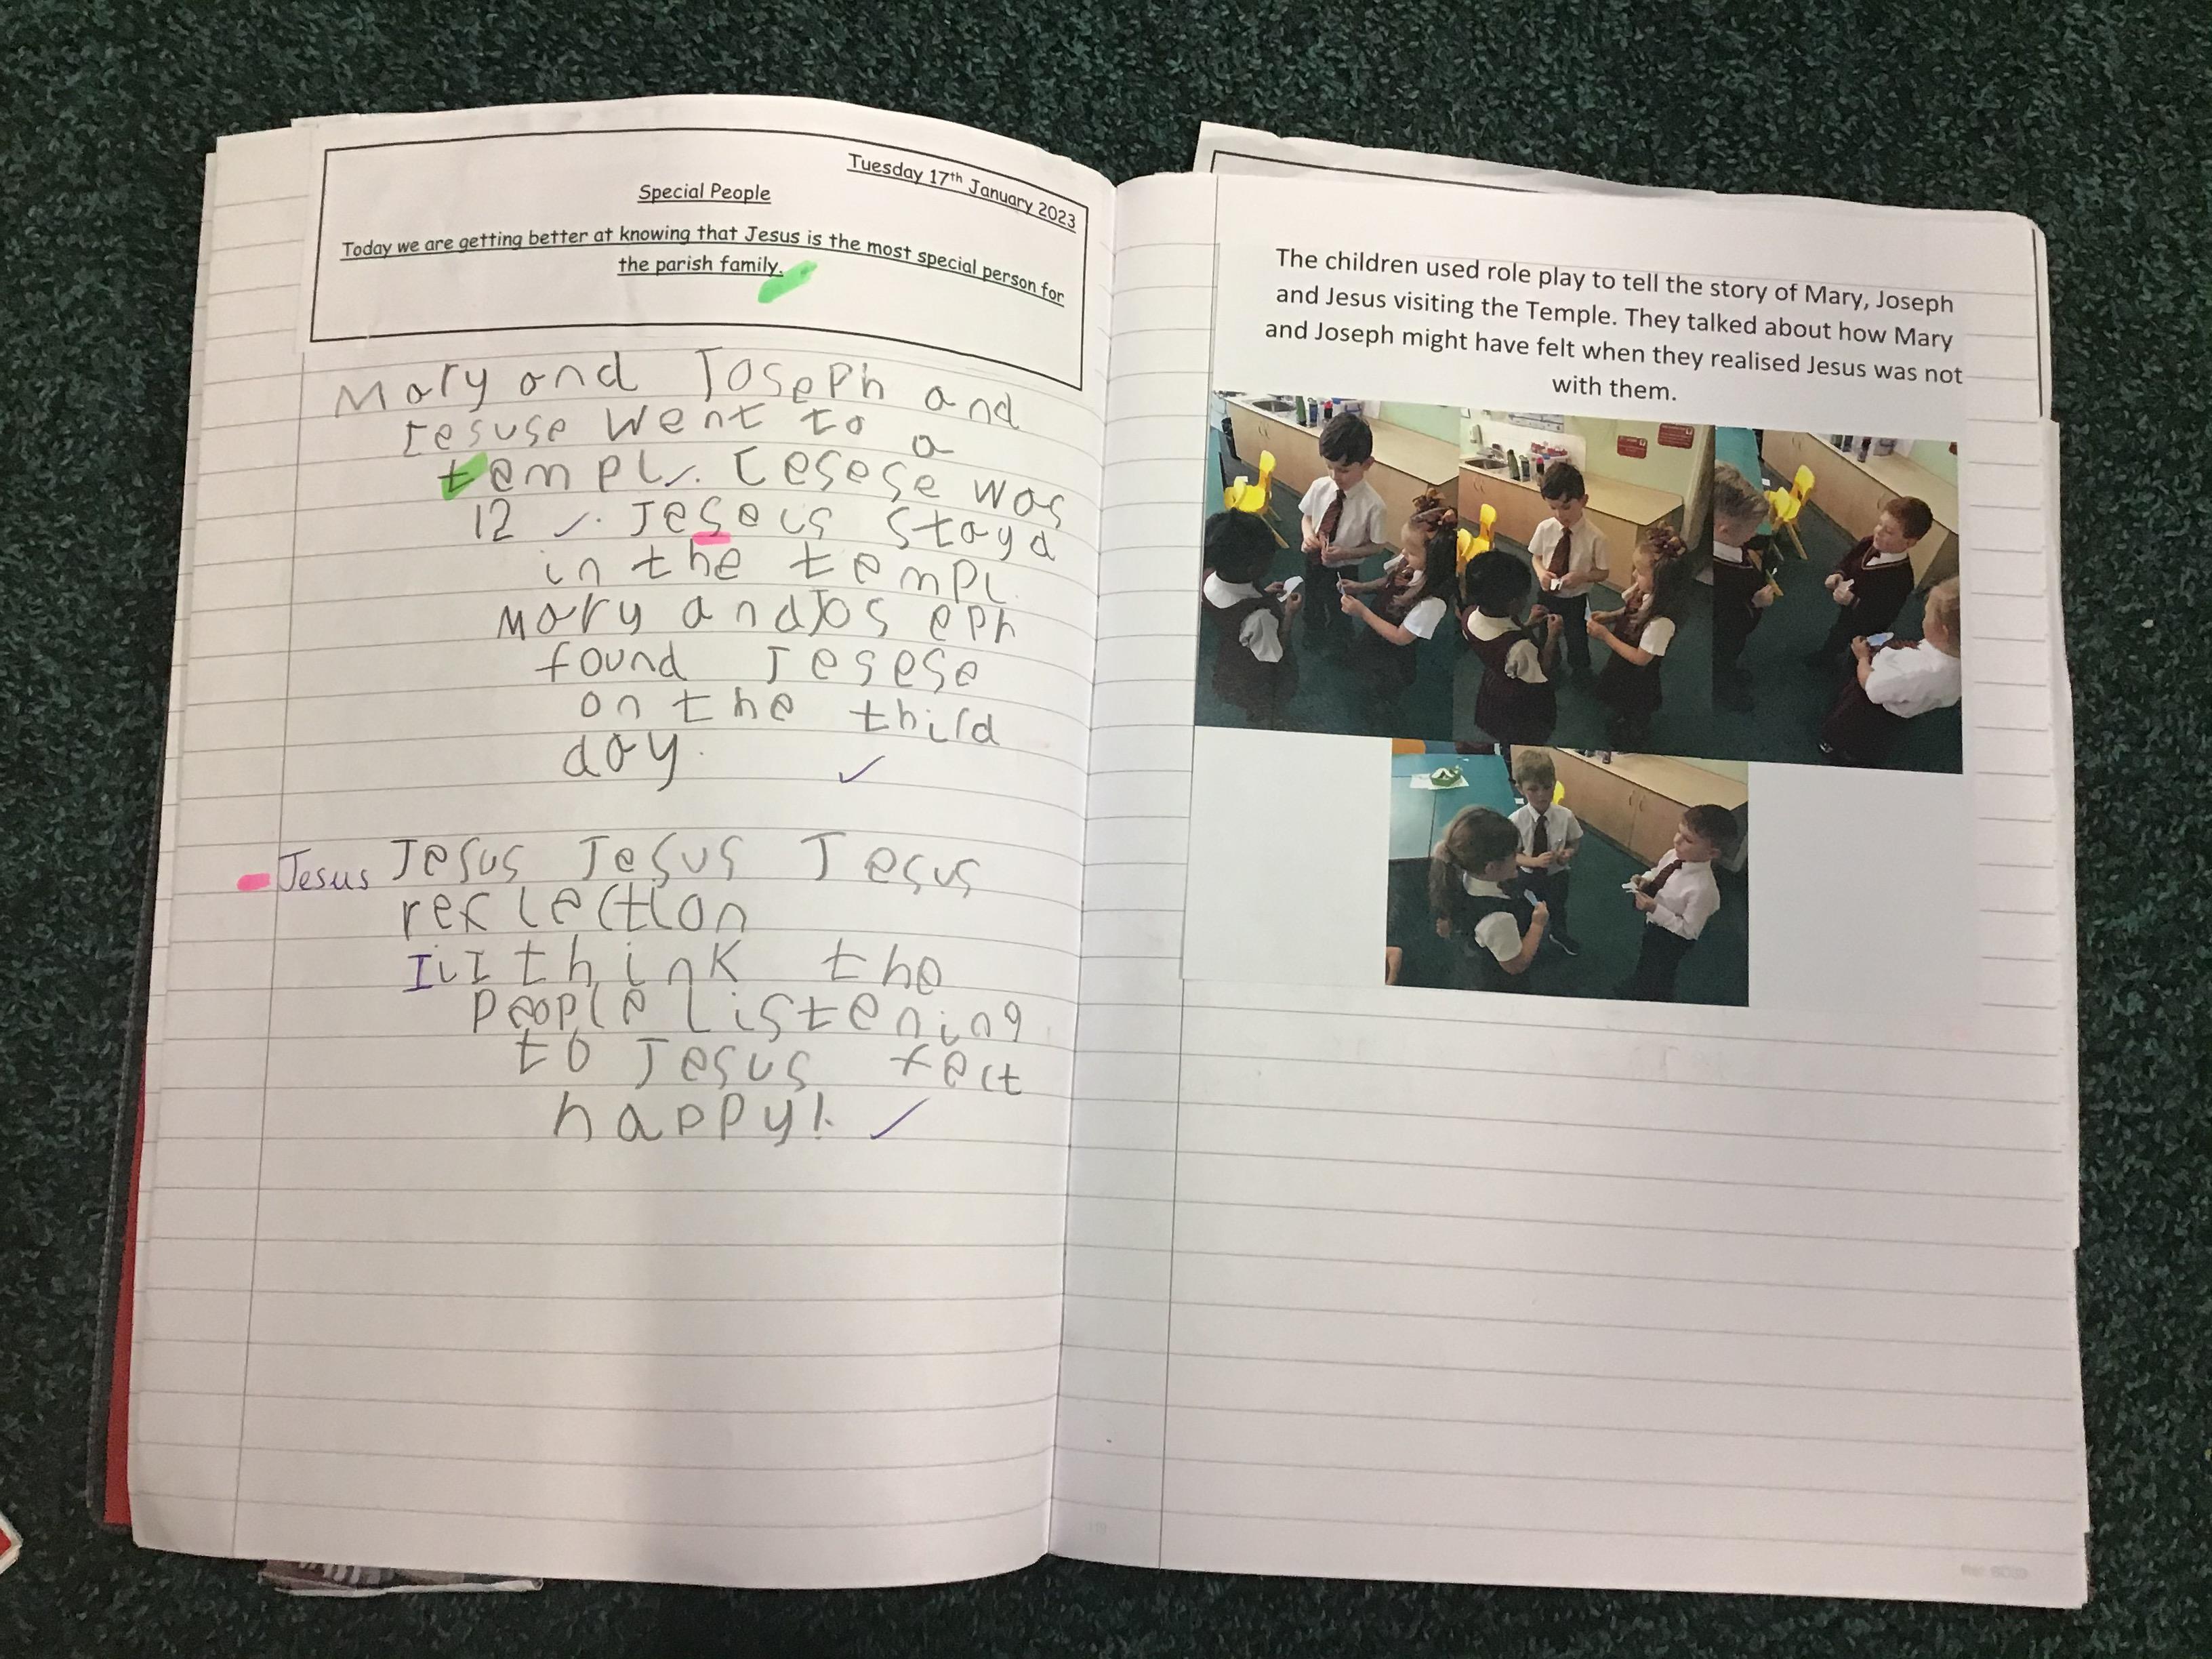 Tuesday 17th January 2023
Special People
Today we are getting better at knowing that Jesus is the most special person for
the parish family.
Mary and Joseph and
resuse went to a
templ. Cesese was
12. Jeseus stayd
in the templ.
Mary and Joseph
found Jesese
on the third
day.
Jesus Jesus Jesus Jesus
reflection
I i I think the
people listening
to Jesus felt
happy!.
The children used role play to tell the story of Mary, Joseph
and Jesus visiting the Temple. They talked about how Mary
and Joseph might have felt when they realised Jesus was not
with them.